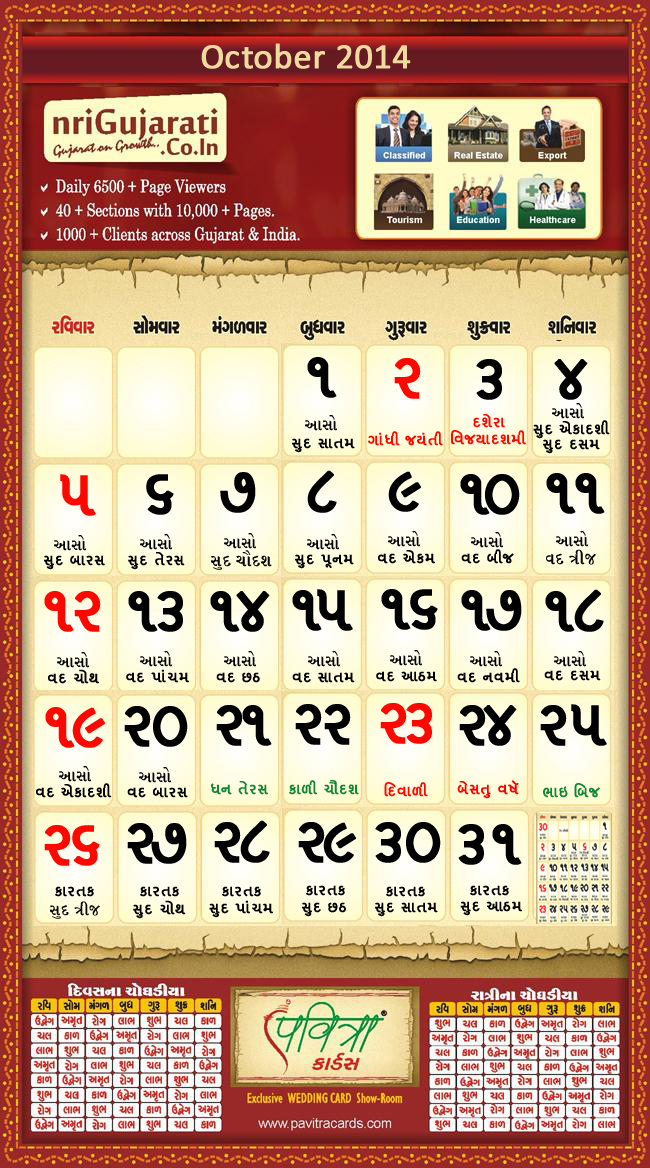 October 2014
nriGujarati
Gujarat on Growth..
.Co.In
Daily 6500 + Page Viewers
40 + Sections with 10,000 + Pages.
1000 + Clients across Gujarat & India.
Classified Real Estate Export
Tourism Education Healthcare
રવિવાર સોમવાર મંગળવાર બુધવાર ગુરૂવાર શુક્રવાર શનિવાર
૧ ૨ ૩ ૪
આસો સુદ સાતમ
ગાંધી જયંતી
દશેરા વિજયાદશમી
આસો સુદ એકાદશી સુદ દસમ
૫ ૬ ૭ ૮ ૯ ૧૦ ૧૧
આસો આસો આસો આસો આસો આસો આસો
સુદ બારસ સુદ તેરસ સુદ ચૌદશ સુદ પૂનમ વદ એકમ વદ બીજ વદ ત્રીજ
૧૨ ૧૩ ૧૪ ૧૫ ૧૬ ૧૭ ૧૮
આસો આસો આસો આસો આસો આસો આસો
વદ ચોથ વદ પાંચમ વદ છઠ વદ સાતમ વદ આઠમ વદ નવમી વદ દસમ
૧૯ ૨૦ ૨૧ ૨૨ ૨૩ ૨૪ ૨૫
આસો આસો
વદ એકાદશી વદ બારસ ધન તેરસ કાળી ચૌદશ દિવાળી બેસતુ વર્ષ ભાઇ બિજ
૨૬ ૨૭ ૨૮ ૨૯ ૩૦ ૩૧
કારતક કારતક કારતક કારતક કારતક કારતક
સુદ ત્રીજ સુદ ચોથ સુદ પાંચમ સુદ છઠ સુદ સાતમ સુદ આઠમ
દિવસના ચોઘડીયા
રવિ સોમ મંગળ બુધ ગુરૂ શુક્ર શનિ
ઉદ્વેગ અમૃત રોગ લાભ શુભ ચલ કાળ
ચલ કાળ ઉદ્વેગ અમૃત રોગ લાભ શુભ
લાભ શુભ ચલ કાળ ઉદ્વેગ અમૃત રોગ
અમૃત રોગ લાભ શુભ ચલ કાળ ઉદ્વેગ
કાળ ઉદ્વેગ અમૃત રોગ લાભ શુભ ચલ
શુભ ચલ કાળ ઉદ્વેગ અમૃત રોગ લાભ
રોગ લાભ શુભ ચલ કાળ ઉદ્વેગ અમૃત
ઉદ્વેગ અમૃત રોગ લાભ શુભ ચલ કાળ
પવિત્રા®
કાર્ડસ
Exclusive WEDDING CARD Show-Room
www.pavitracards.com
રાત્રીના ચોઘડીયા
રવિ સોમ મંગળ બુધ ગુરૂ શુક્ર શનિ
શુભ ચલ કાળ ઉદ્વેગ અમૃત રોગ લાભ
અમૃત રોગ લાભ શુભ ચલ કાળ ઉદ્વેગ
ચલ કાળ ઉદ્વેગ અમૃત રોગ લાભ શુભ
રોગ લાભ શુભ ચલ કાળ ઉદ્વેગ અમૃત
કાળ ઉદ્વેગ અમૃત રોગ લાભ શુભ ચલ
લાભ શુભ ચલ કાળ ઉદ્વેગ અમૃત રોગ
ઉદ્વેગ અમૃત રોગ લાભ શુભ ચલ કાળ
શુભ ચલ કાળ ઉદ્વેગ અમૃત રોગ લાભ